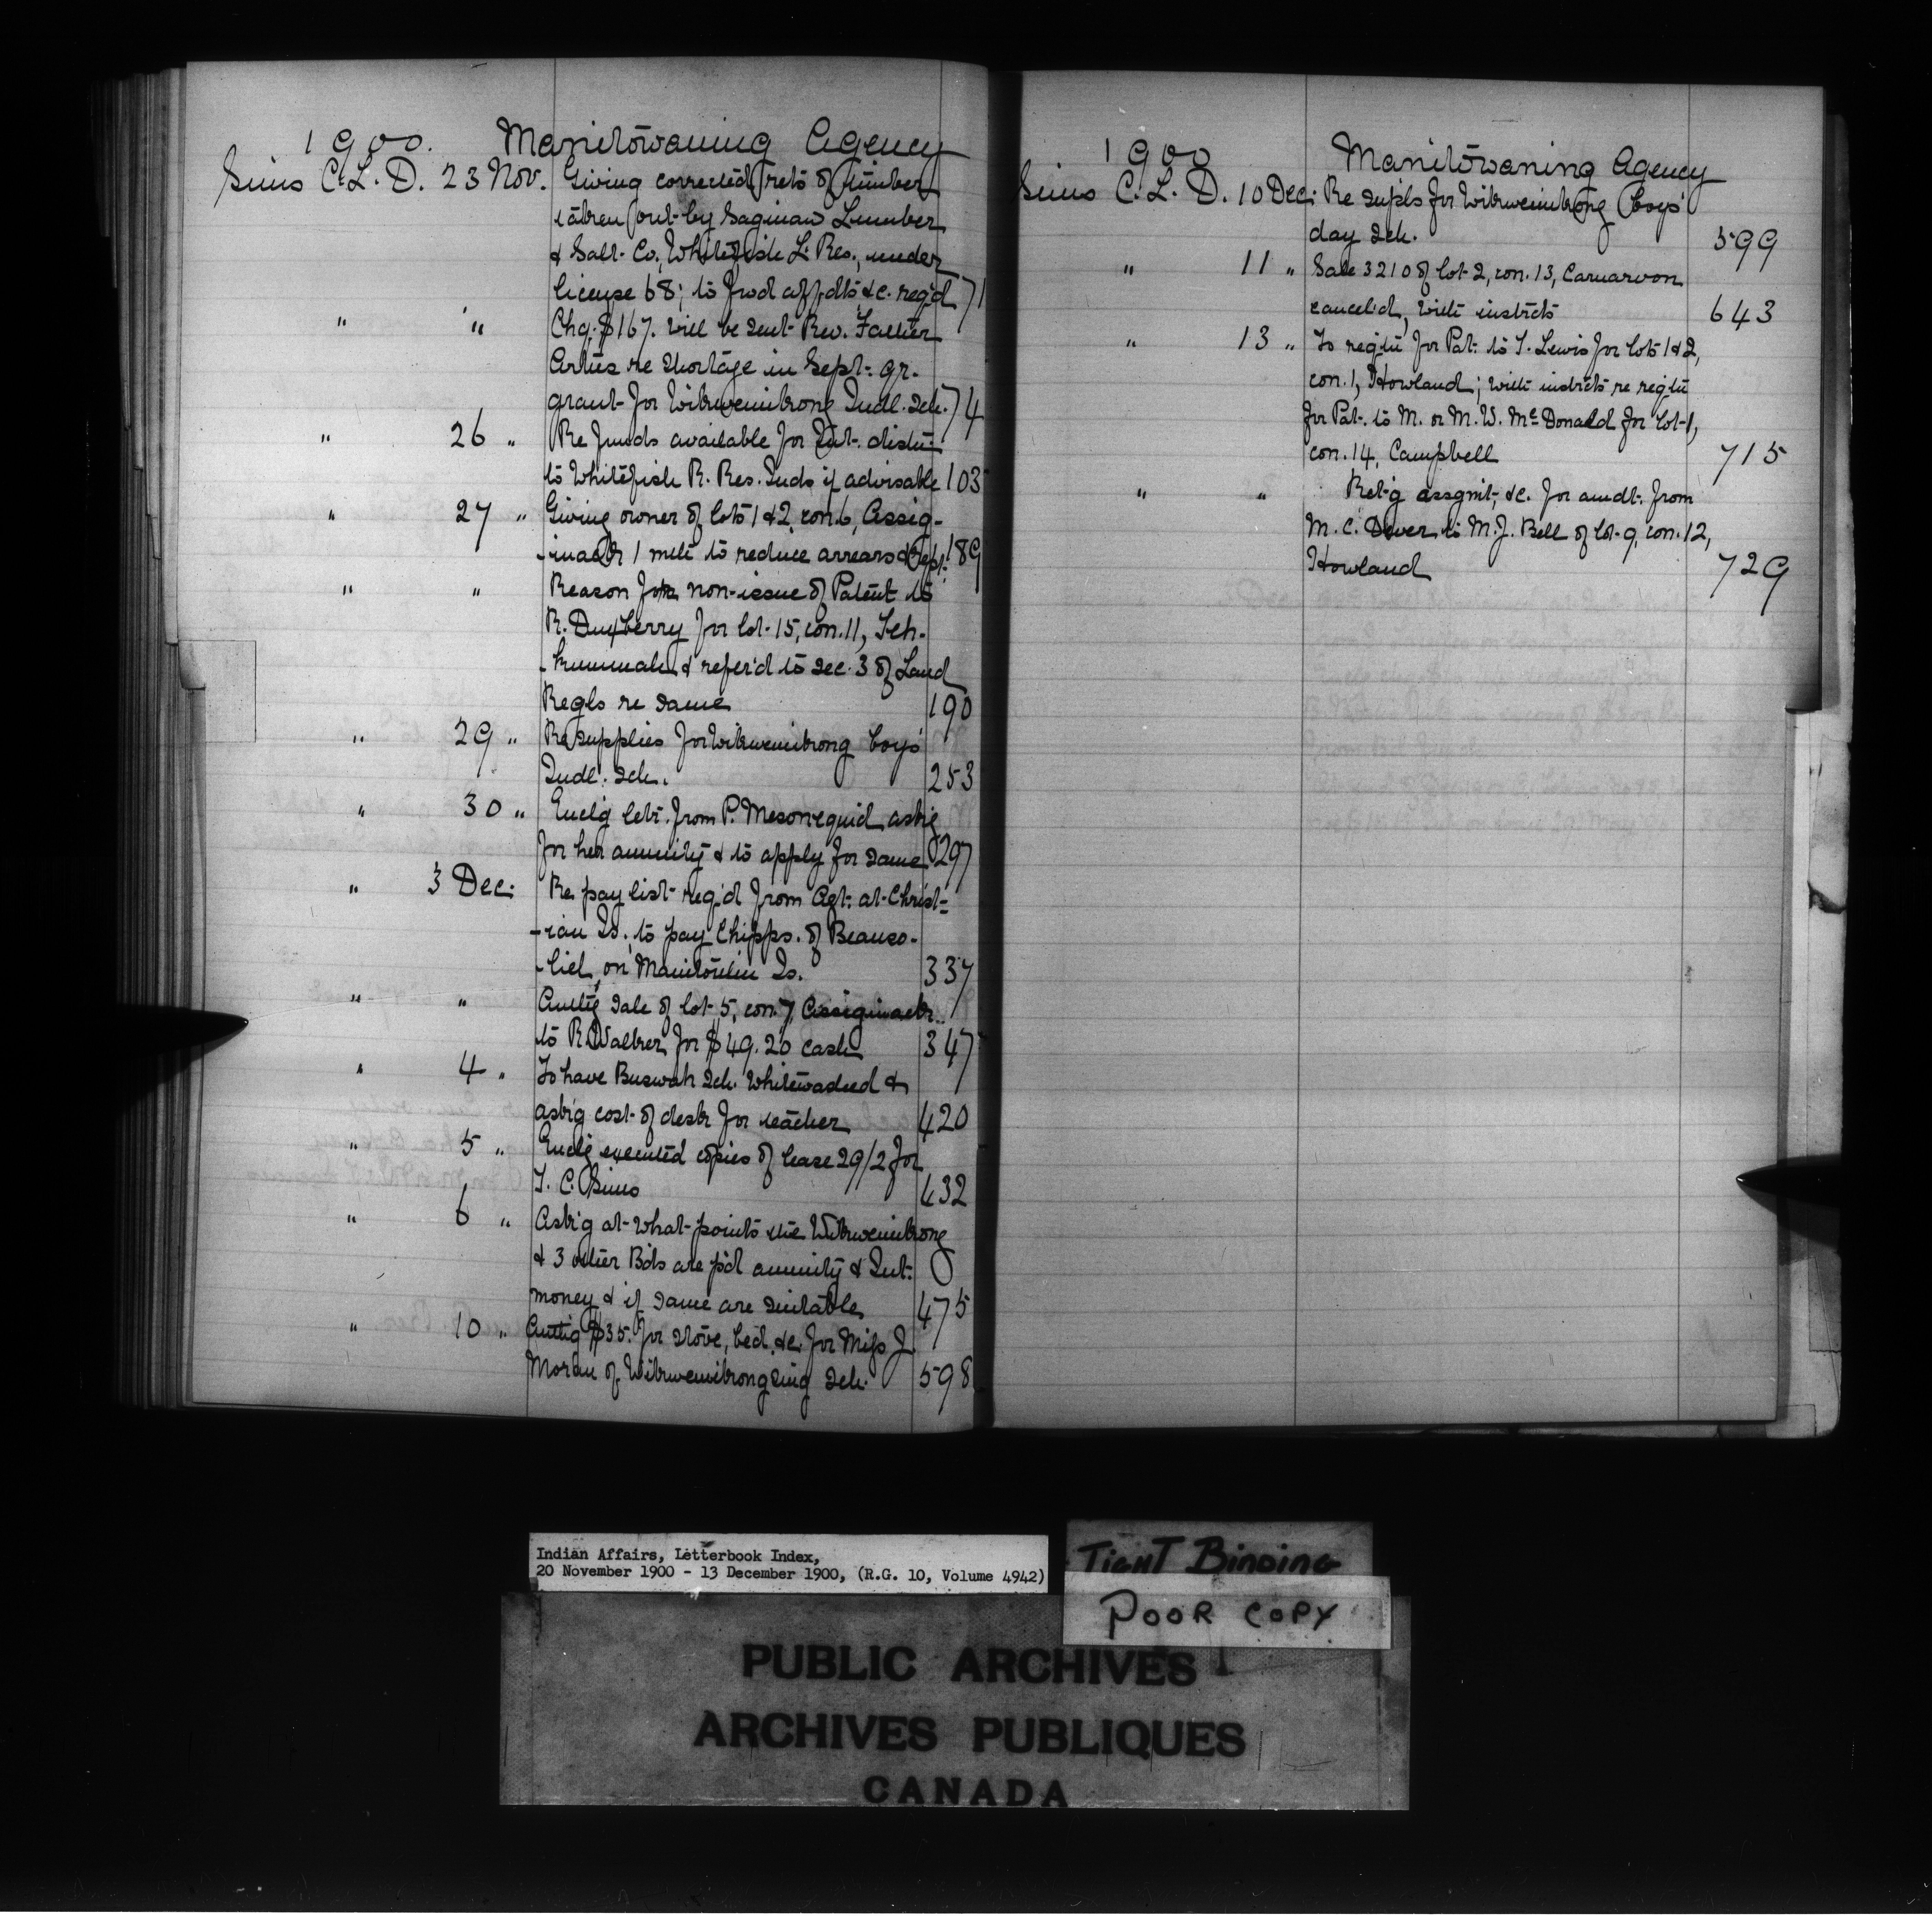 1900. Manitowaning Agency
Sims C. L. D. 23 Nov. Giving corrected rets of timber
taken out by Saginaw Lumber
& Salt Co., Whitefish L. Res., under
license 68; to fwd affdts &c. reqd 71
" " Chq. $167. will be sent Rev. Father
Artus re shortage in Sept. qr.
grant for Wikwemikong Indl. Sch. 74
" 26 " Re funds available for Int. distn
to Whitefish R. Res. Inds if advisable 103
" 27 " Giving owner of lots 1 & 2, con. 6, Assig-
-inack 1 mth to reduce arrears 189
" " Reason for non-issue of Patent to
R. Duxberry for lot 15, con. 11, Teh-
-kummah & refer'd to sec. 3 of Land
Regls re same 190
" 29 " Re supplies for Wikwemikong boys'
Indl. Sch. 253
" 30 " Encl'g letr. from P. Mesonequid ask'g
for her annuity & to apply for same 297
" 3 Dec. Re pay list req'd from Agt. at Christ-
-ian Is. to pay Chipps. of Beauso-
-liel, on Manitoulin Is. 337
" " Auth'g sale of lot 5, con. 7, Assiginack
to R. Walker for $49.20 cash 347
" 4 " To have Buswah Sch. whitewashed &
ask'g cost of desk for teacher 420
" 5 " Encl'g executed copies of lease 29/2 for
T. C. Sims 432
" 6 " Ask'g at what points the Wikwemikong
& 3 other Bds are p'd annuity & Int.
money & if same are suitable 475
" 10 " Auth'g $35. for stove, bed, &c. for Miss J.
Moran of Wikwemikongsing Sch. 598
1900 Manitowaning Agency
Sims C. L. D. 10 Dec. Re supls for Wikwemikong boys'
day Sch. 599
" 11 " Sale 3210 of lot 2, con. 13, Carnarvon
cancel'd, with instrcts 643
" 13 " To reqtn for Pat. to T. Lewis for lots 1 & 2,
con. 1, Howland; with instrcts re reqtn
for Pat. to M. or M. W. McDonald for lot 1,
con. 14, Campbell 715
" " Ret'g assgnt, &c. for amdt. from
M. C. Dever to M. J. Bell of lot 9, con. 12,
Howland 729
Indian Affairs, Letterbook Index,
20 November 1900 - 13 December 1900, (R.G. 10, Volume 4942)
TIGHT BINDING
POOR COPY
PUBLIC ARCHIVES
ARCHIVES PUBLIQUES
CANADA